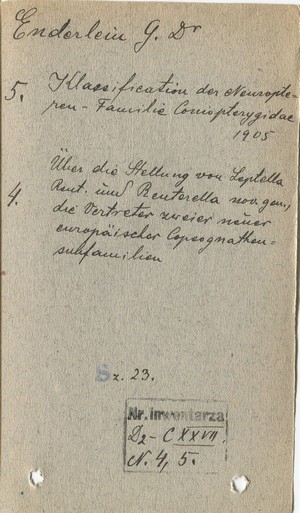 Enderlein G. Dr
5. Klassification der Neuropte-
ren-Familie Coniopterygidae
1905
4. Über die Stellung von Leptella
Reut. und Reuterella nov. gen.,
die Vertreter zweier neuer
europäischer Copeognathen=
subfamilien
Sz. 23.
Nr. inwentarza
D2-CXXVII.
N. 4, 5.